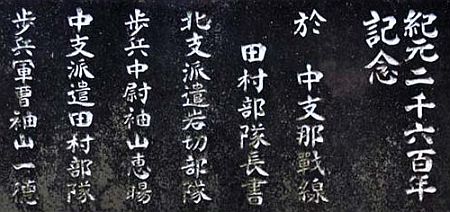 紀元二千六百年
記念
於　中支那戰線
田村部隊長書
北支派遣岩切部隊
歩兵中尉袖山恵暘
中支派遣田村部隊
歩兵軍曹袖山一德